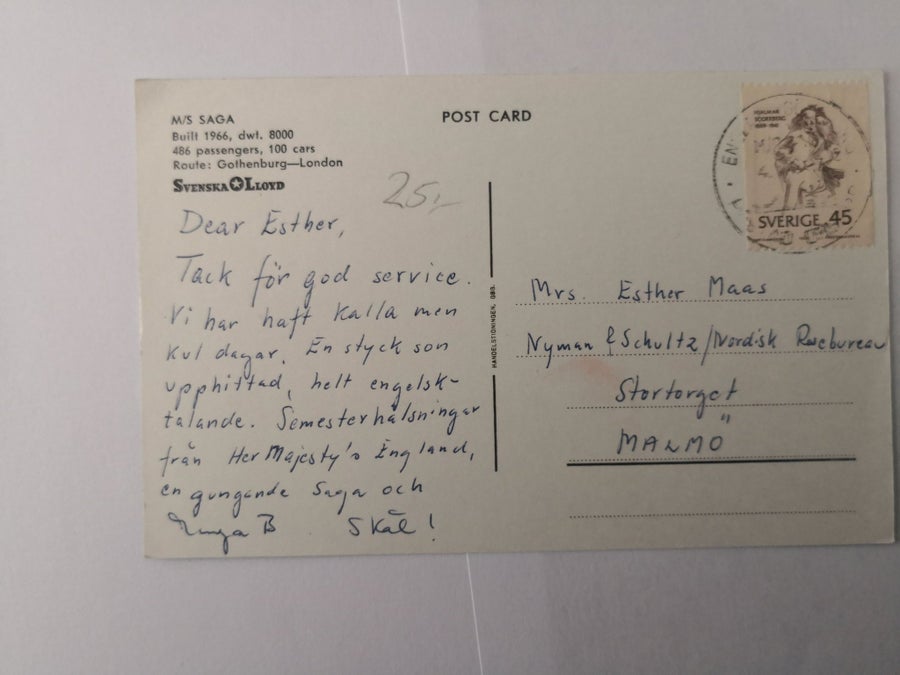 M/S SAGA
Built 1966, dwt. 8000
486 passengers, 100 cars
Route: Gothenburg—London
SVENSKA LLOYD
POST CARD
25,-
Dear Esther,
Tack för god service.
Vi har haft kalla men
kul dagar. En styck son
upphittad, helt engelsk-
talande. Semesterhälsningar
från Her Majesty's England,
en gungande Saga och
B Skål!
HANDELSTIDNINGEN, GBG.
HJALMAR
SÖDERBERG
1869-1941
SVERIGE 45
Mrs. Esther Maas
Nyman & Schultz/Nordisk Resebureau
Stortorget
MALMÖ